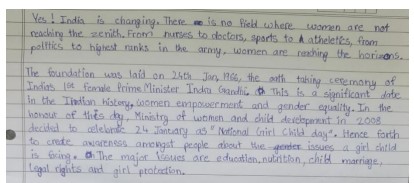 Yes! India is changing. There is no field where women are not
reaching the zenith. From nurses to doctors, sports to atheletics, from
politics to highest ranks in the army, women are reaching the horizons.
The foundation was laid on 24th Jan, 1966, the oath taking ceremony of
Indias 1st female Prime Minister Indira Gandhi. This is a significant date
in the Indian history, women empowerment and gender equality. In the
honour of this day, Ministry of women and child development in 2008
decided to celebrate 24 January as "National Girl Child day". Hence forth
to create awareness amongst people about the gender issues a girl child
is facing. The major issues are education, nutrition, child marriage,
legal rights and girl protection.